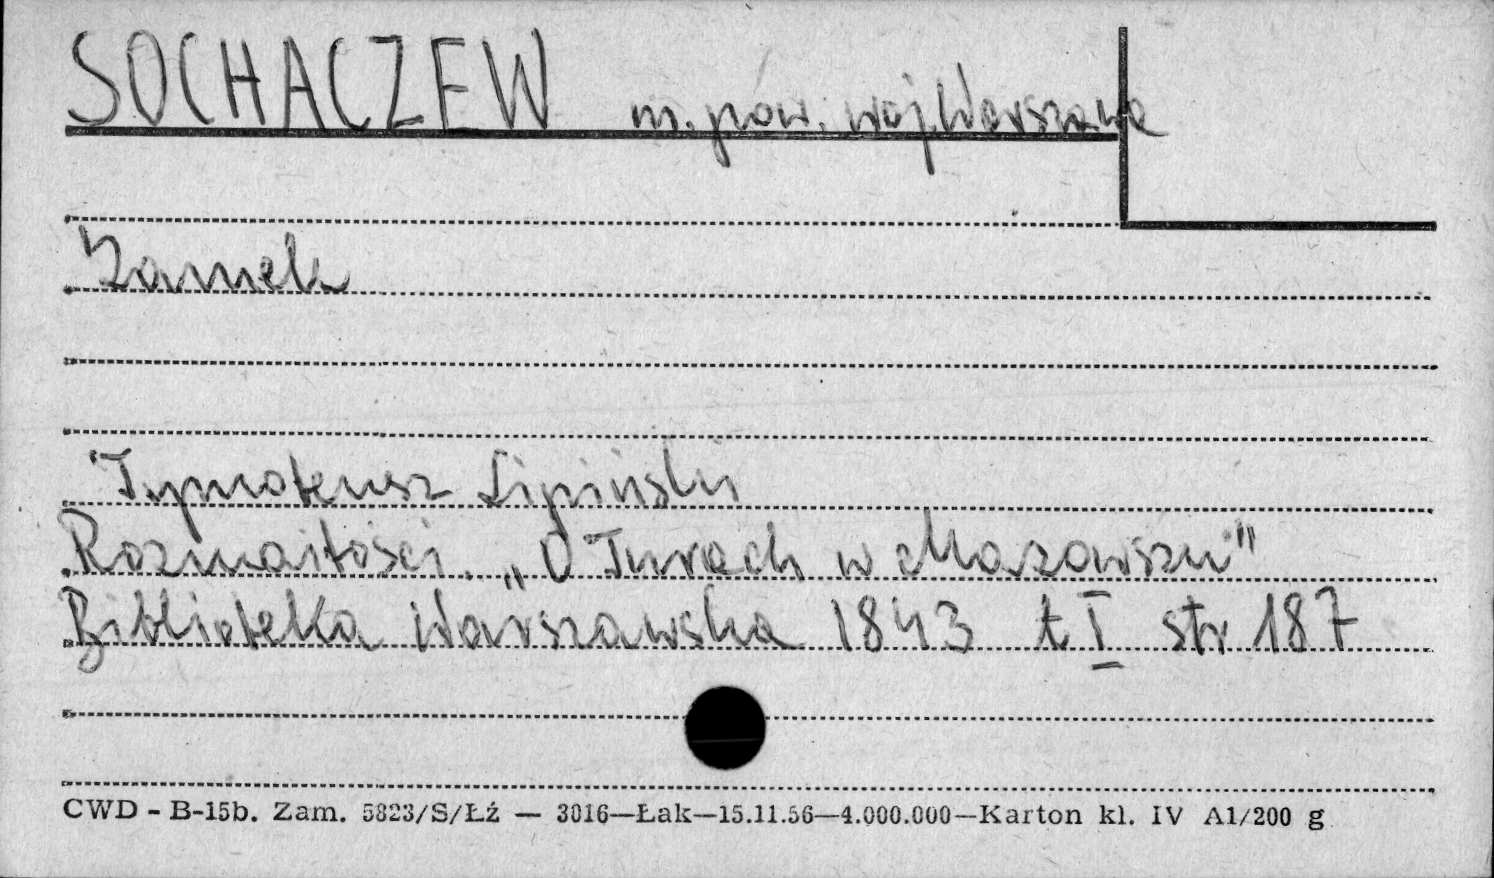 SOCHACZEW m. pow. woj. Warszawa
Zamek
Tymoteusz Lipiński
Rozmaitości. „O Turach w Mazowszu"
Biblioteka Warszawska 1843 t I str 187
CWD - B-15b. Zam. 5823/S/Łź — 3016—Łak—15.11.56—4.000.000—Karton kl. IV A1/200 g